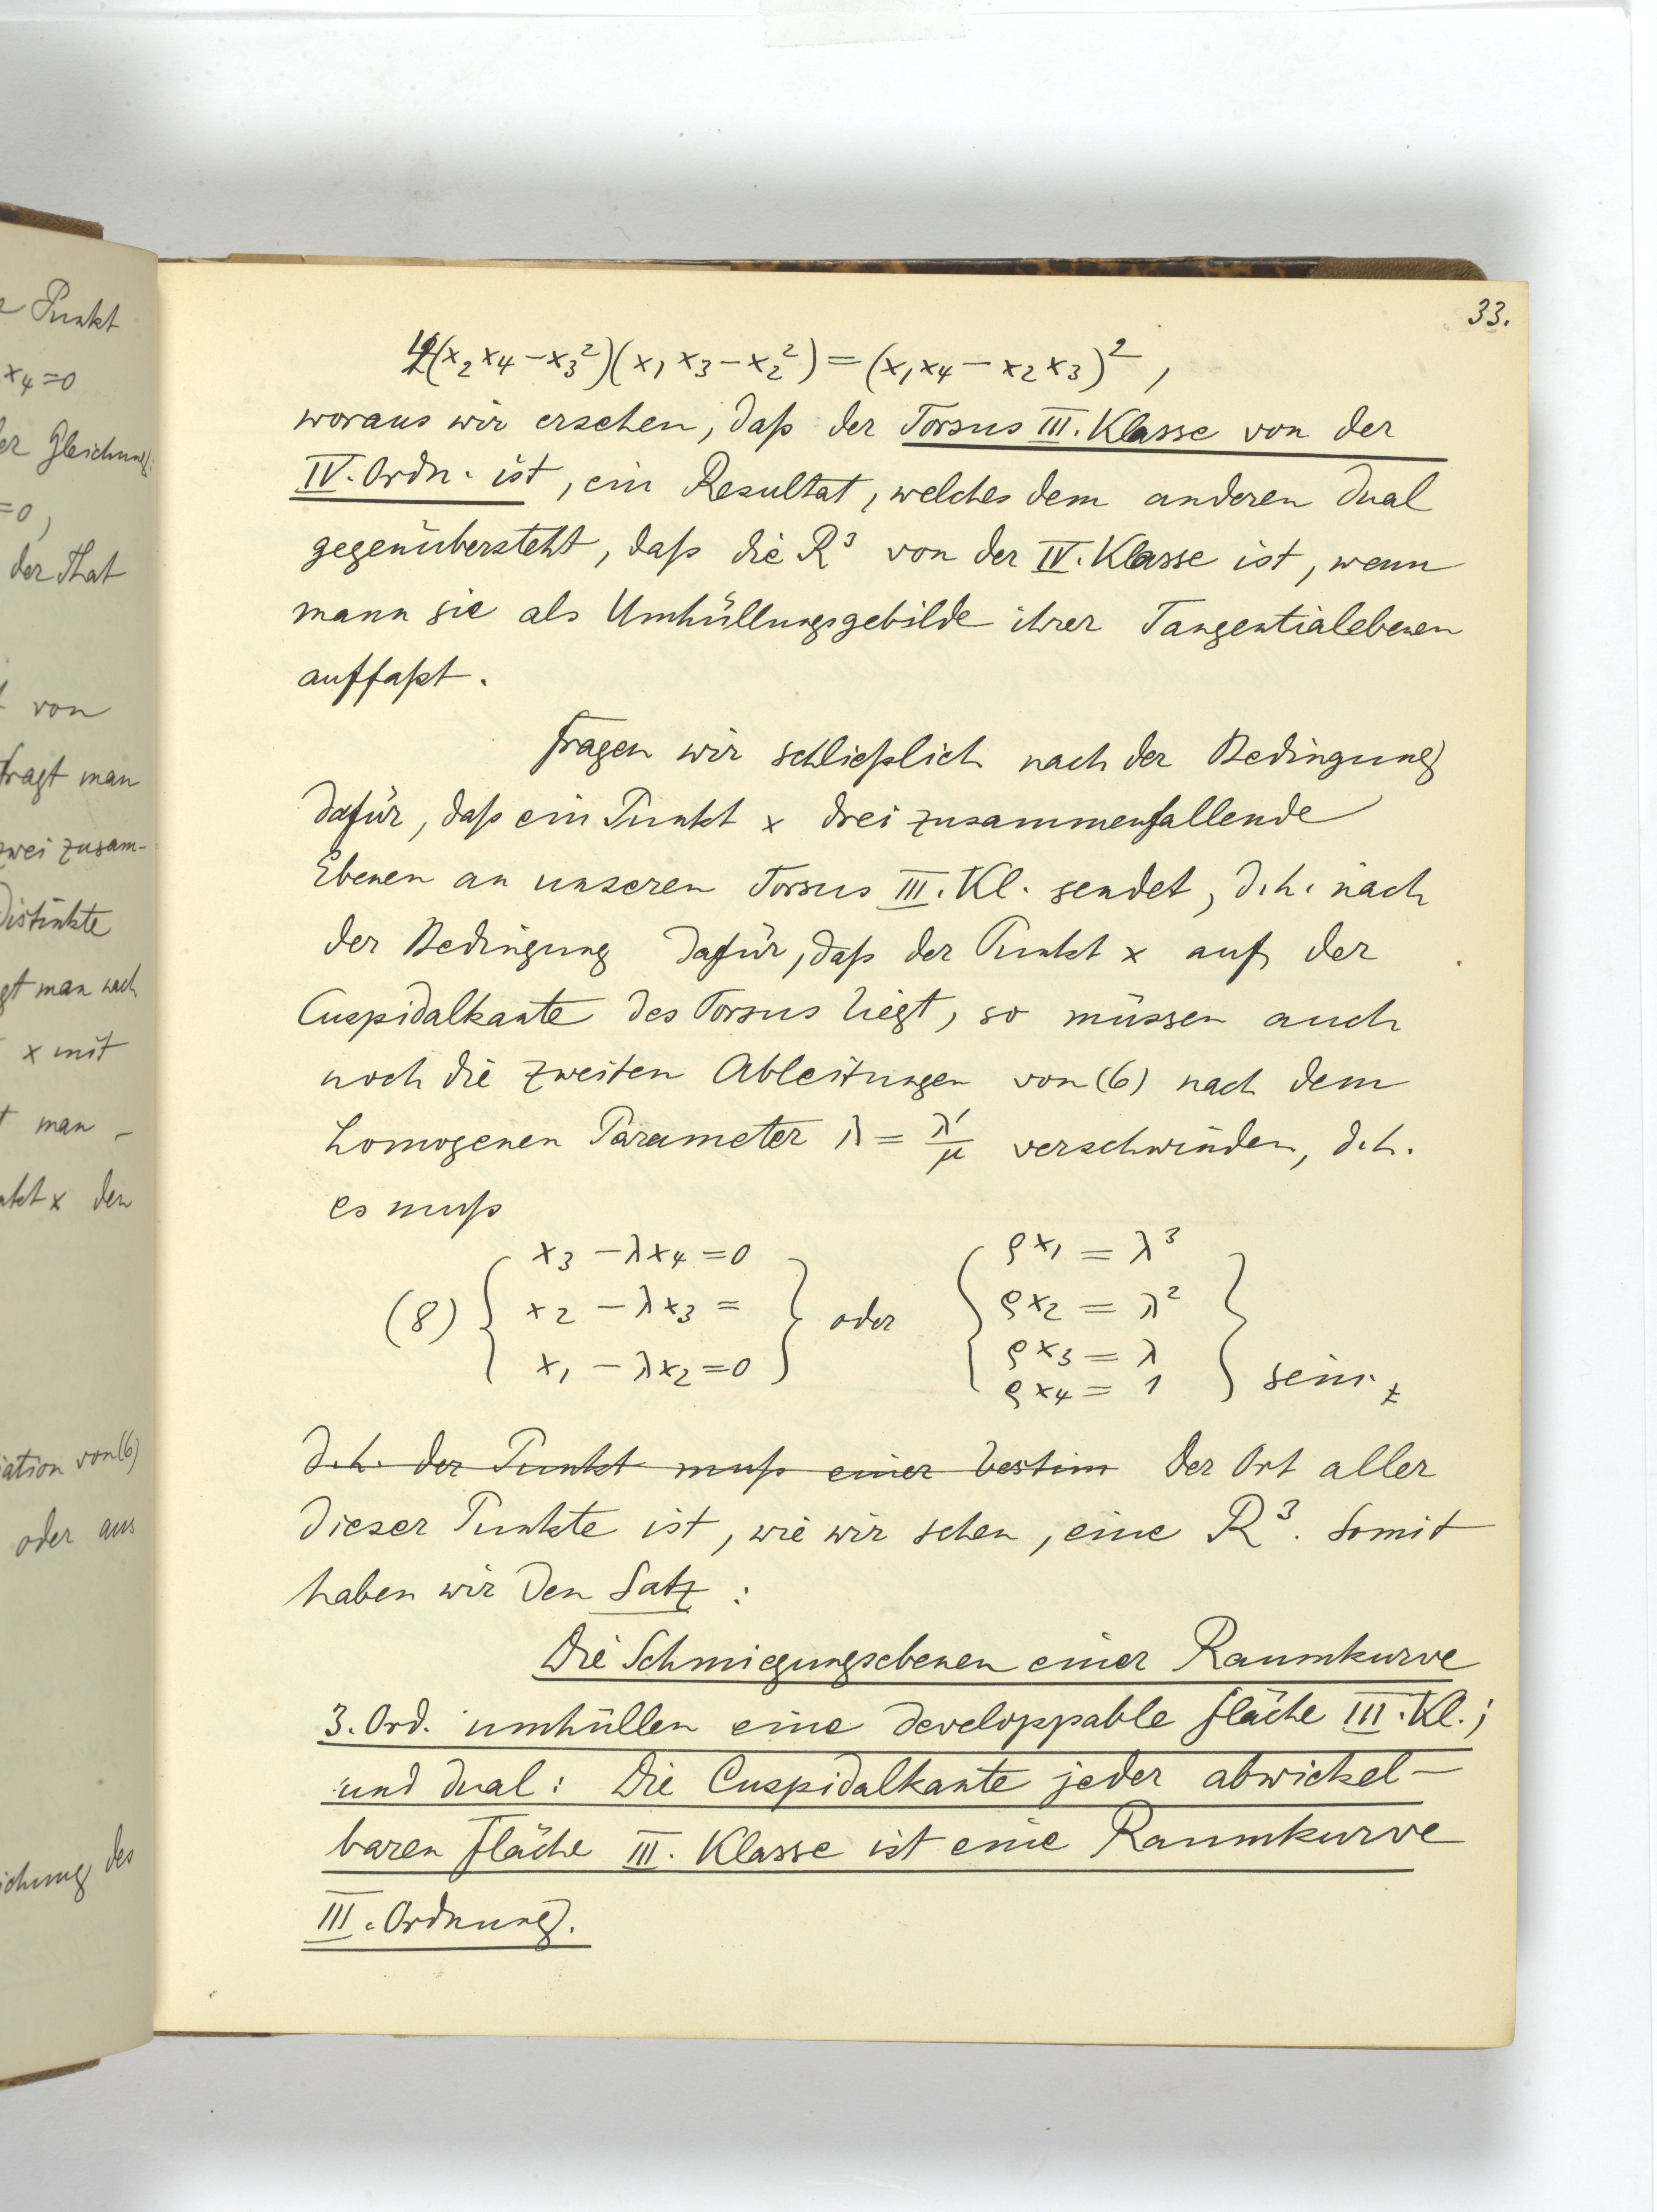 e Punkt
x4=0
er Gleichung:
=0,
der That
von
fragt man
zwei zusam-
distinkte
gt man nach
x mit
man -
nkt x den
iation von (6)
oder aus
ichung des
33.
4(x₂x₄-x₃²)(x₁x₃-x₂²)=(x₁x₄-x₂x₃)²,
woraus wir ersehen, daß der Torsus III. Klasse von der
IV. Ordn. ist, ein Resultat, welches dem anderen dual
gegenübersteht, daß die R³ von der IV. Klasse ist, wenn
mann sie als Umhüllungsgebilde ihrer Tangentialebenen
auffaßt.
Fragen wir schließlich nach der Bedingung
dafür, daß ein Punkt x drei zusammenfallende
Ebenen an unseren Torsus III. Kl. sendet, d.h. nach
der Bedingung dafür, daß der Punkt x auf der
Cuspidalkante des Torsus liegt, so müssen auch
noch die zweiten Ableitungen von (6) nach dem
homogenen Parameter λ = λ'/μ verschwinden, d.h.
es muß
(8) { x₃ - λx₄ = 0 } oder { ρx₁ = λ³
x₂ - λx₃ = ρx₂ = λ²
x₁ - λx₂ = 0 ρx₃ = λ
ρx₄ = 1 } sein.
d.h. der Punkt muß einer bestim Der Ort aller
dieser Punkte ist, wie wir sehen, eine R³. Somit
haben wir den Satz :
Die Schmiegungsebenen einer Raumkurve
3. Ord. umhüllen eine developpable Fläche III. Kl.;
und dual: Die Cuspidalkante jeder abwickel-
baren Fläche III. Klasse ist eine Raumkurve
III. Ordnung.